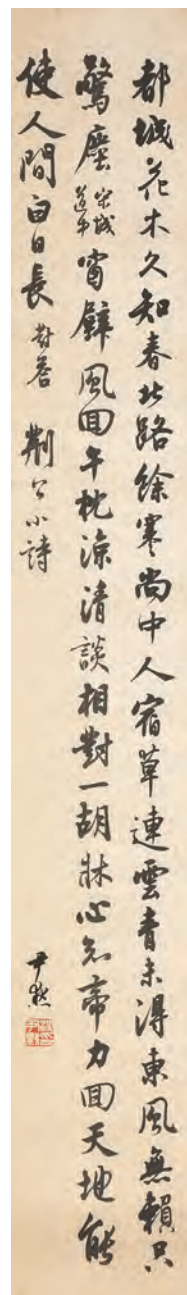 都城花木久知春北路餘寒尚中人宿草連雲青未得東風無賴只
驚塵宋城道中窗壁風回午枕涼清談相對一胡牀心知帝力回天地能
使人間白日長對客荆公小詩
尹默